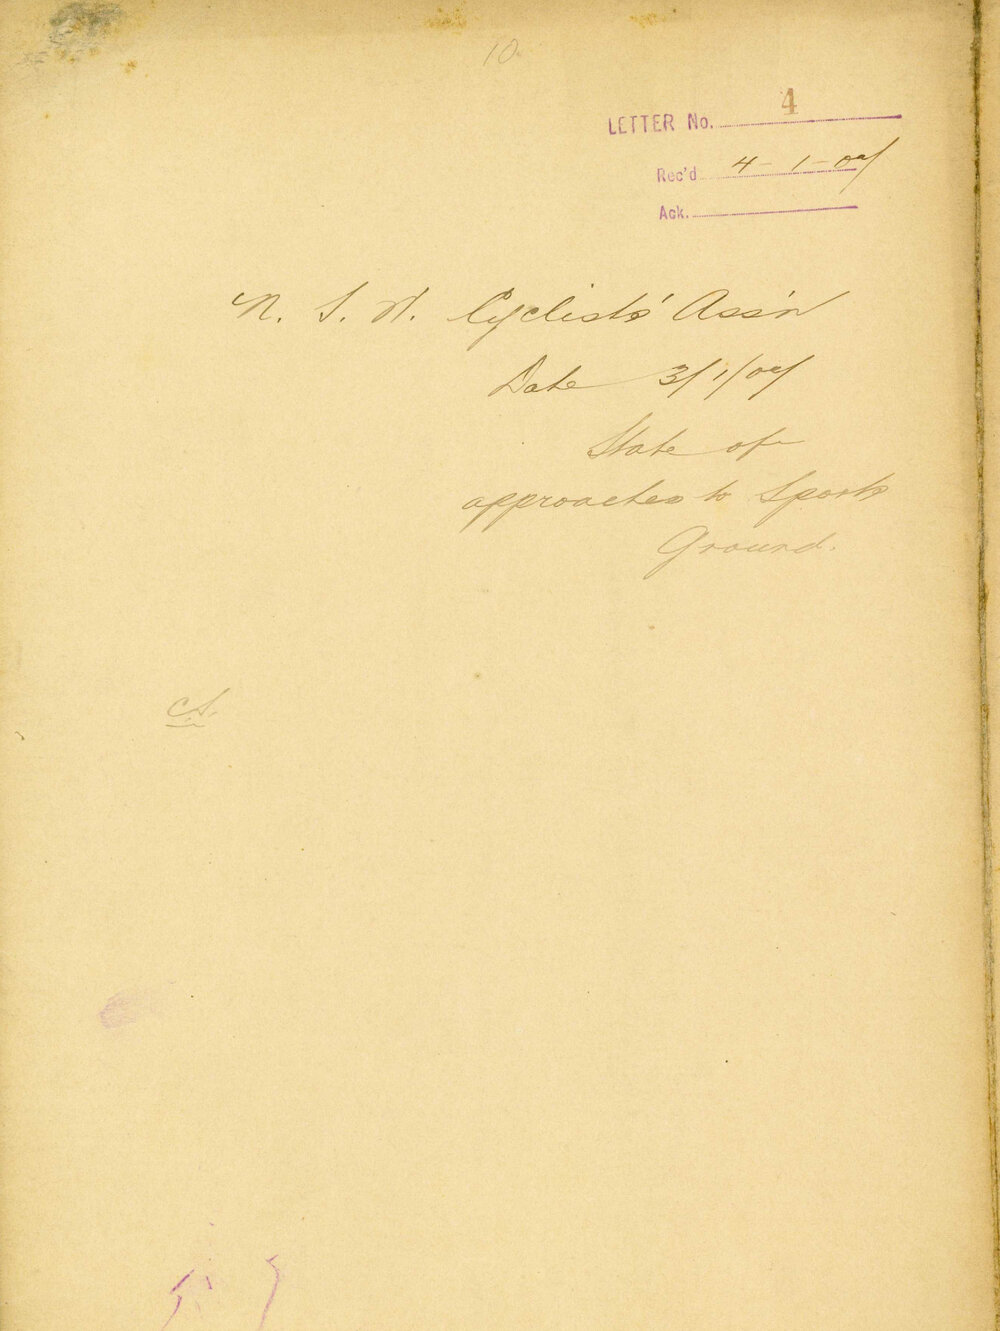 10
LETTER No. 4
Rec'd 4-1-07
Ack.
N. S. W. Cyclists' Ass'n
Date 3/1/07
State of
approaches to Sports
Ground.